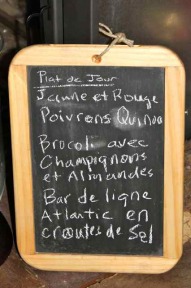 Plat de Jour
Jaune et Rouge
Poivrons Quinoa
Brocoli avec
Champignons
et Almandes
Bar de ligne
Atlantic en
croutes de Sel